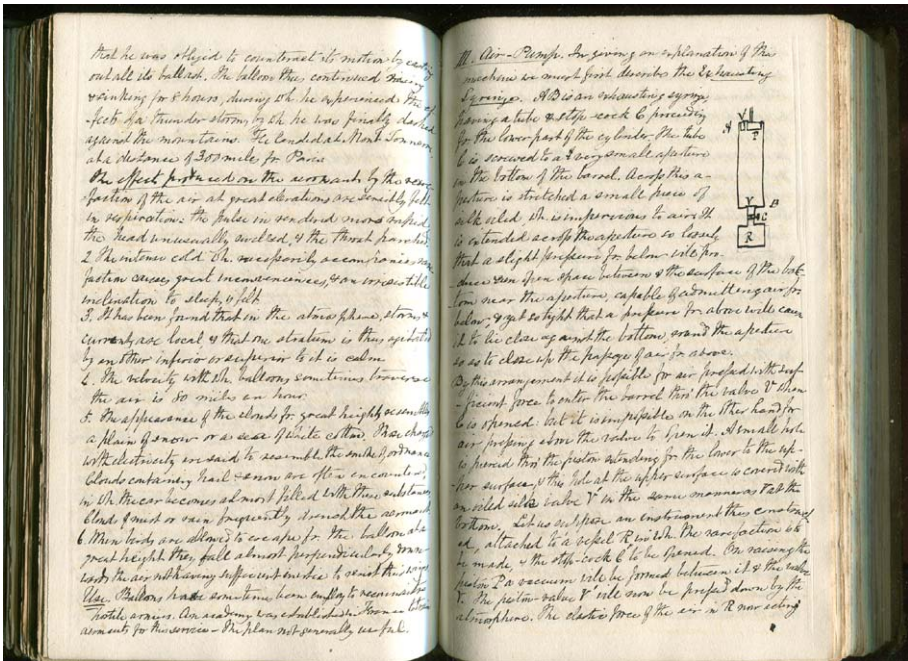 that he was obliged to counteract its motion by casting
out all its ballast. The balloon thus continued rising
& sinking for 8 hours, during wh. he experienced the ef-
fects of a thunder storm, by wh. he was finally dashed
against the mountains. He landed at Mont
at a distance of 300 miles fr Paris
The effect produced on the aeronauts by the rare-
faction of the air at great elevations are sensibly felt
in respiration. the pulse is rendered more rapid
the head unusually swelled, & the throat parched
2. The intense cold wh. necessarily accompanies rare-
faction causes great inconveniences, & an irresistible
inclination to sleep, is felt
3. It has been found that in the atmosphere, storms &
currents are local & that one stratum is thus agitated
by another inferior or superior to it is calm
4. The velocity with wh. balloons sometimes traverse
the air is 80 miles an hour
5. The appearance of the clouds fr. great heights resembles
a plain of snow or a sea of white cotton. Those charged
with electricity are said to resemble the smoke of ordnance
Clouds containing hail & snow are often encountered,
in wh. the car becomes almost filled with these substances
Clouds of mist or rain frequently drench the aeronaut
6. When birds are allowed to escape fr. the balloon at a
great height they fall almost perpendicularly down
wards the air not having sufficient to resist their wings
Use. Balloons have sometime been employ to reconnoitre
hostile armies. An academy was established in France to train
aeronauts for this service - The plan not generally useful.
III. Air-Pump. In giving an explanation of the
machine we must first describe the Exhausting
Syringe. AB is an exhausting syringe
having a tube & stop cock C proceeding
for the lower part of the cylinder The tube
C is screwed to a very small aperture
in the bottom of the barrel. Across this a-
perture is stretched a small piece of
silk oiled wh. is impervious to air. It
is extended across the aperture so loosely
that a slight pressure fr below will pro-
duce an open space between & the surface of the bot-
tom near the aperture, capable of admitting air fr
below, & yet so tight that a pressure fr above will cause
it to lie close against the bottom, round the aperture
so as to close up the passage of air fr above.
By this arrangement it is possible for air pressed with suf-
-ficient force to enter the barrel thro' the valve V when
C is opened: but it is impossible on the other hand for
air pressing down the valve to open it. A small hole
is pierced thro' the piston extending fr the lower to the up-
-per surface, & this hole at the upper surface is covered with
an oiled silk valve V' in the same manner as V at the
bottom. Let us suppose an instrument thus construct-
ed, attached to a vessel R in wh. the rarefaction is to
be made, & the stop-cock C to be opened. On raising the
piston P a vacuum will be formed between it & the valve
V. The piston valve V' will now be pressed down by the
atmosphere. The elastic force of the air in R now acting
V
A
P
V
B
C
R